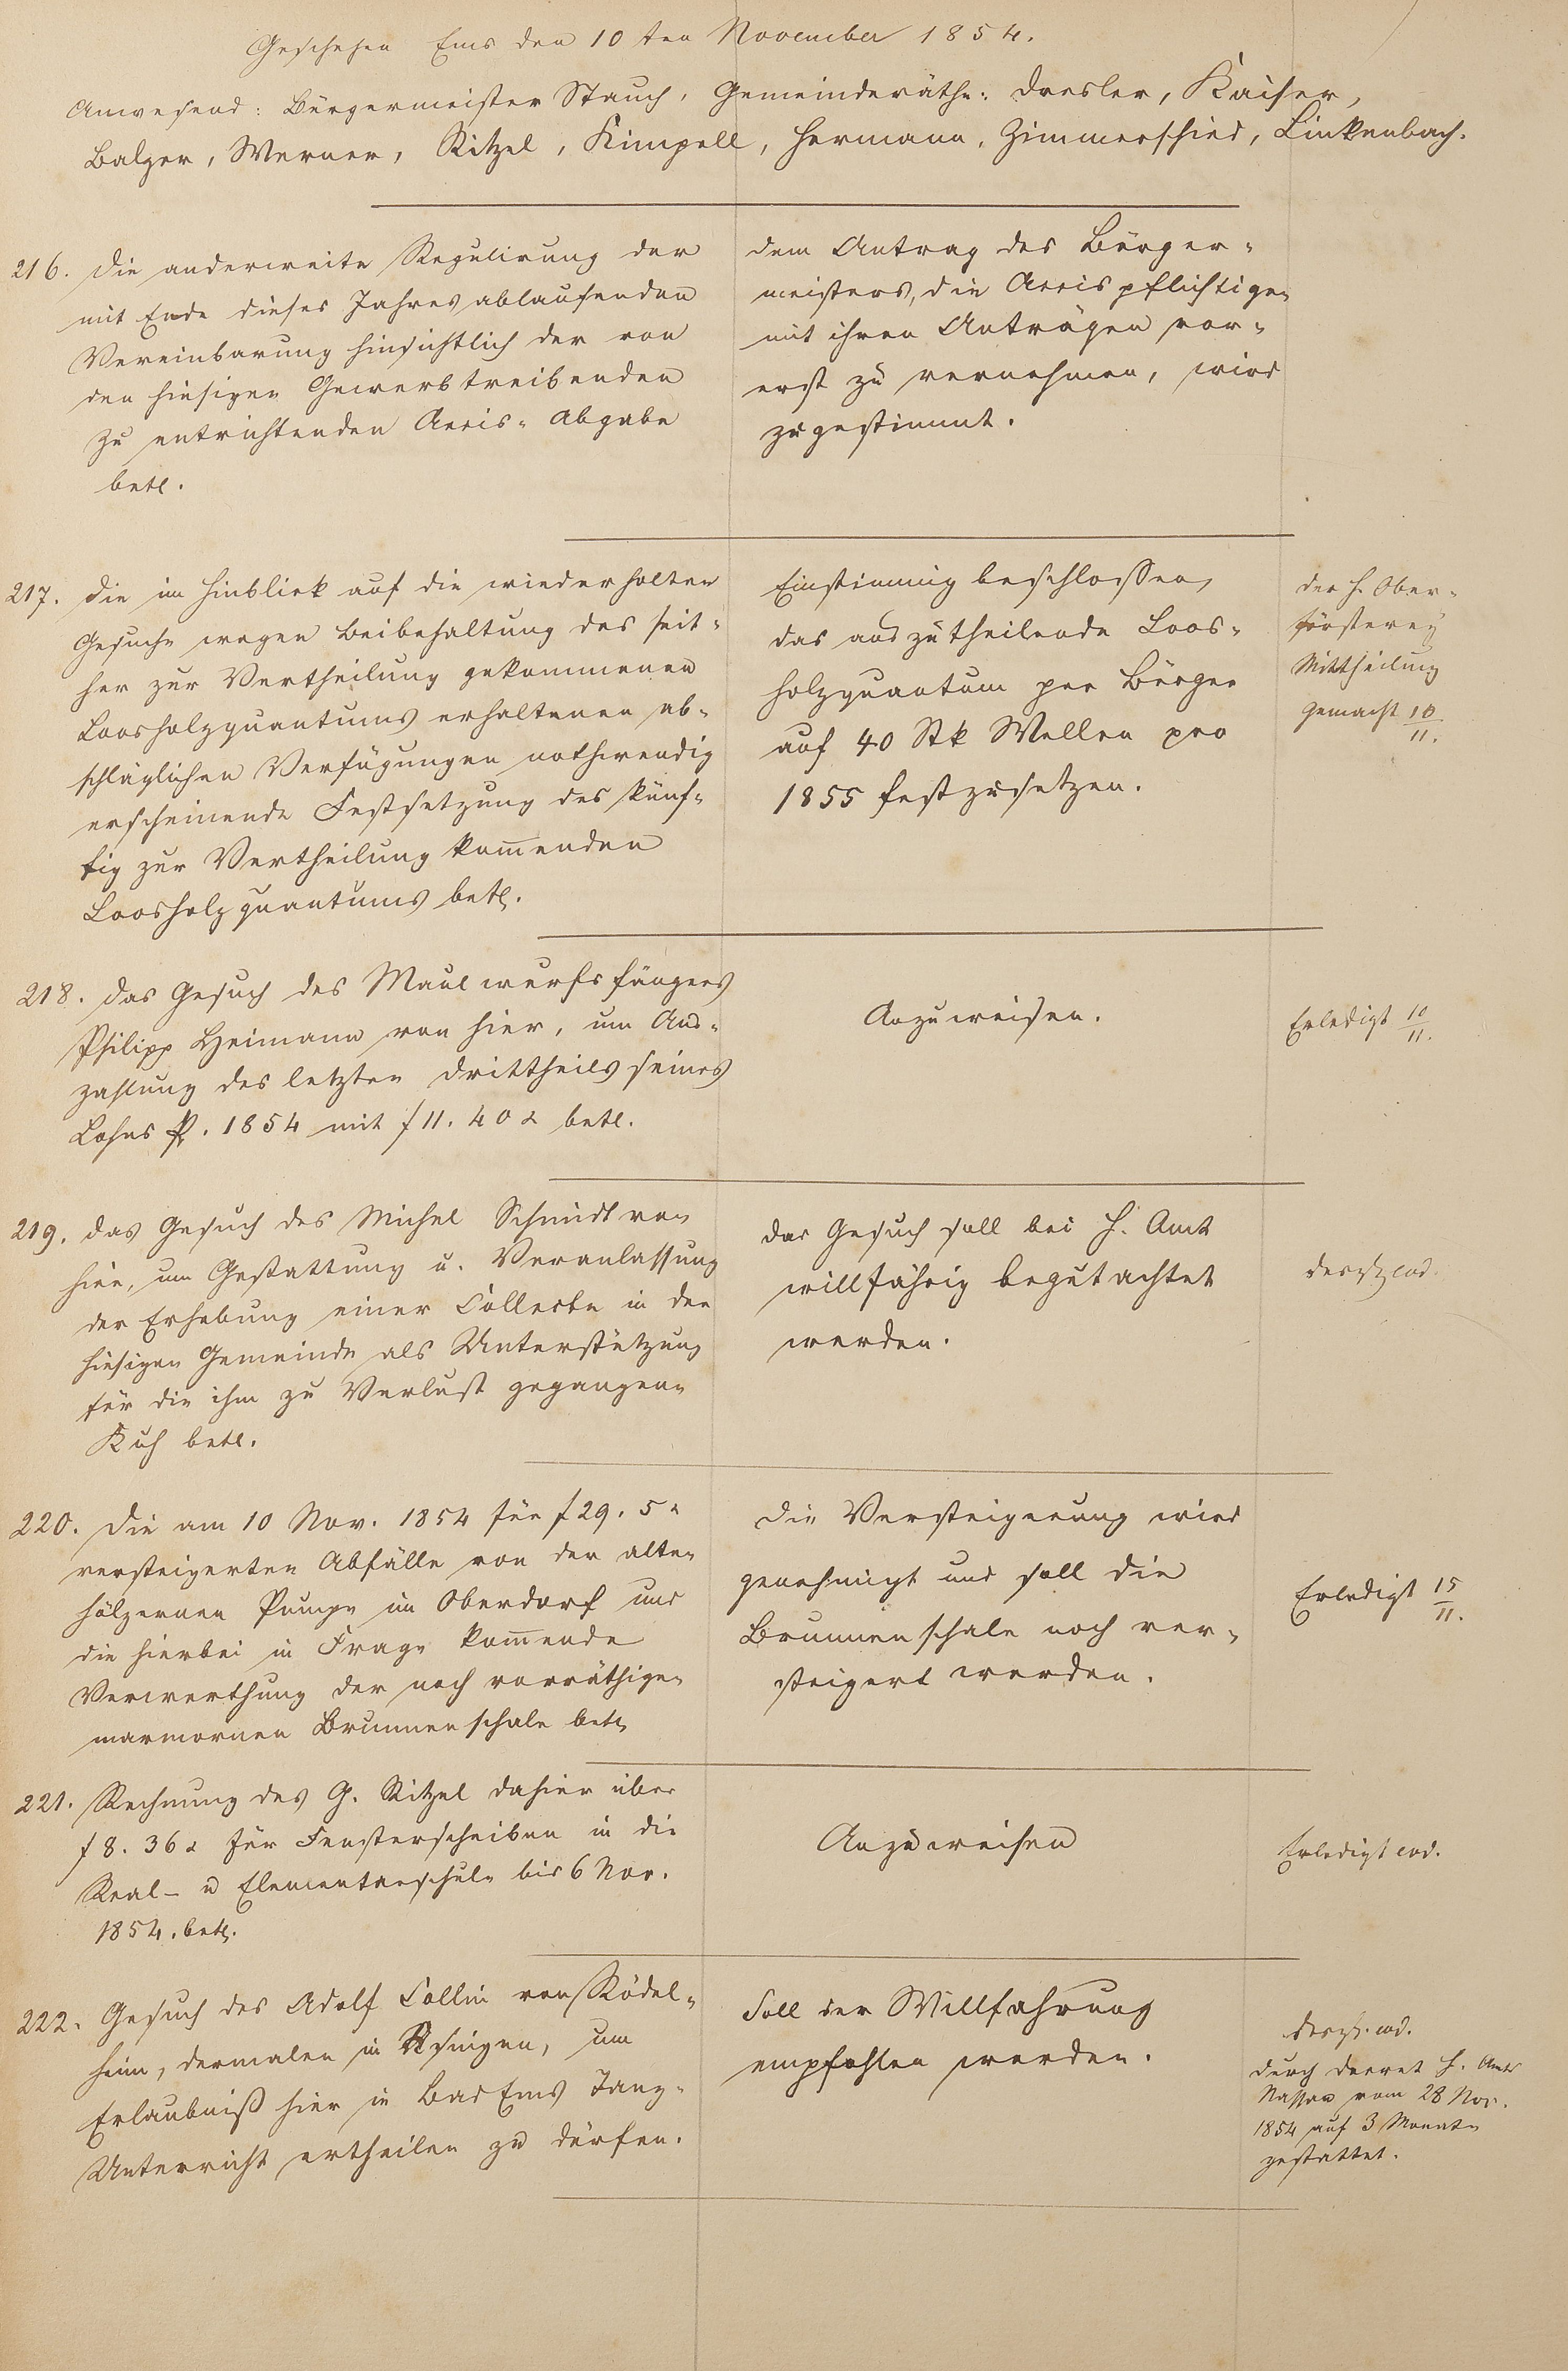 Geschehen Ems den 10ten November 1854.
Anwesend: Bürgermeister Stauch, Gemeinderäthe: Dresler, Kaiser,
Balzer, Werner, Ritzel, Kimpell, Hermann, Zimmerschied, Linkenbach.
216. Die anderweite Regulirung der
mit Ende dieses Jahres ablaufenden
Vereinbarung hinsichtlich der von
den hiesigen Gewerbtreibenden
zu entrichtenden Accis-Abgabe
betl.
Dem Antrag des Bürger-
meisters, die Accispflichtigen
mit ihren Anträgen vor-
erst zu vernehmen, wird
zugestimmt.
217. Die im Hinblick auf die wiederholten
Gesuche wegen Beibehaltung des seit-
her zur Vertheilung gekommenen
Loosholzquantums erhaltenen ab-
schläglichen Verfügungen nothwendig
erscheinende Festsetzung des künf-
tig zur Vertheilung kom̅enden
Loosholzquantums betl.
Einstimmig beschlossen,
das auszutheilende Loos-
holzquantum per Bürger
auf 40 Stk Wellen pro
1855 festzusetzen.
Der H. Ober-
försterey
Mittheilung
gemacht 10/11.
218. Das Gesuch des Maulwurfsfängers
Philipp Heimann von hier, um Aus-
zahlung des letzten Drittheils seines
Lohns p. 1854 mit f 11. 40 x betl.
Anzuweisen.
Erledigt 10/11.
219. Das Gesuch des Michel Schmidt von
hier, um Gestattung u. Veranlassung
der Erhebung einer Collecte in der
hiesigen Gemeinde als Unterstützung
für die ihm zu Verlust gegangene
Kuh betl.
Das Gesuch soll bei H. Amt
willfährig begutachtet
werden.
eod.
220. Die am 10 Nov. 1854 für f 29. 5 x
versteigerten Abfälle von der alten
hölzernen Pumpe im Oberdorf und
die hierbei in Frage kom̅ende
Verwerthung der noch vorräthigen
marmornen Brunnenschale betl.
Die Versteigerung wird
genehmigt und soll die
Brunnenschale noch ver-
steigert werden.
Erledigt 15/11.
221. Rechnung des G. Ritzel dahier über
f 8. 36 x für Fensterscheiben in die
Real- u Elementarschule bis 6 Nov.
1854. betl.
Anzuweisen
Erledigt eod.
222. Gesuch des Adolf Collin von Rödel-
heim, dermalen in Usingen, um
Erlaubniß hier in Bad Ems Tanz-
Unterricht ertheilen zu dürfen.
Soll der Willfahrung
empfohlen werden.
eod.
Durch Decret H. Amts
Nassau vom 28 Nov.
1854 auf 3 Monate
gestattet.